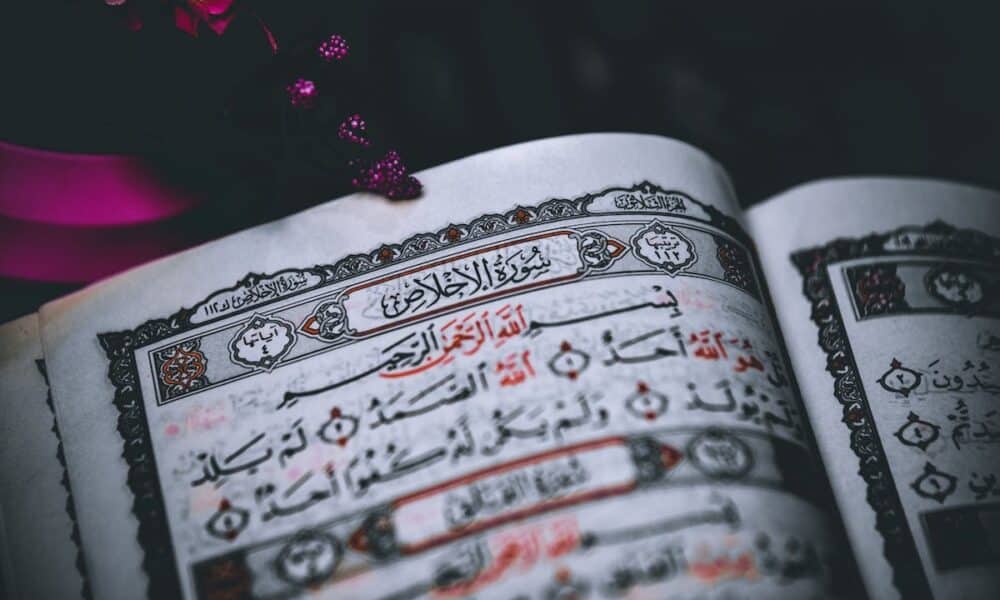 الجزء الثلاثون
سورة الإخلاص ١١٢
ترتيبها ١١٢
سُورَةُ الْإِخْلَاصِ
آياتها ٤
بِسْمِ اللَّهِ الرَّحْمَٰنِ الرَّحِيمِ
قُلْ هُوَ اللَّهُ أَحَدٌ ١ اللَّهُ الصَّمَدُ ٢ لَمْ يَلِدْ
وَلَمْ يُولَدْ ٣ وَلَمْ يَكُن لَّهُ كُفُوًا أَحَدٌ ٤
سُورَةُ الْفَلَقِ
بِسْمِ اللَّهِ الرَّحْمَٰنِ الرَّحِيمِ